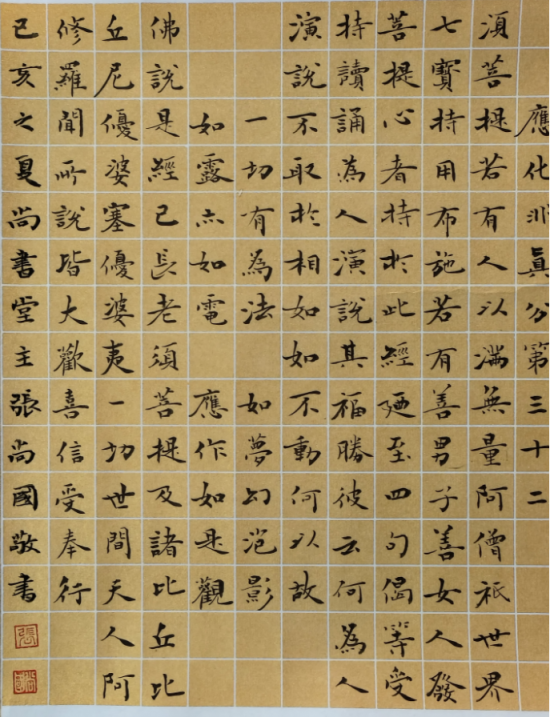 應化非真分第三十二
須菩提若有人以滿無量阿僧祇世界
七寶持用布施若有善男子善女人發
菩提心者持於此經廼至四句偈等受
持讀誦為人演說其福勝彼云何為人
演說不取於相如如不動何以故
一切有為法 如夢幻泡影
如露亦如電 應作如是觀
佛說是經已長老須菩提及諸比丘比
丘尼優婆塞優婆夷一切世間天人阿
修羅聞所說皆大歡喜信受奉行
己亥之夏尚書堂主張尚國敬書
張
尚國